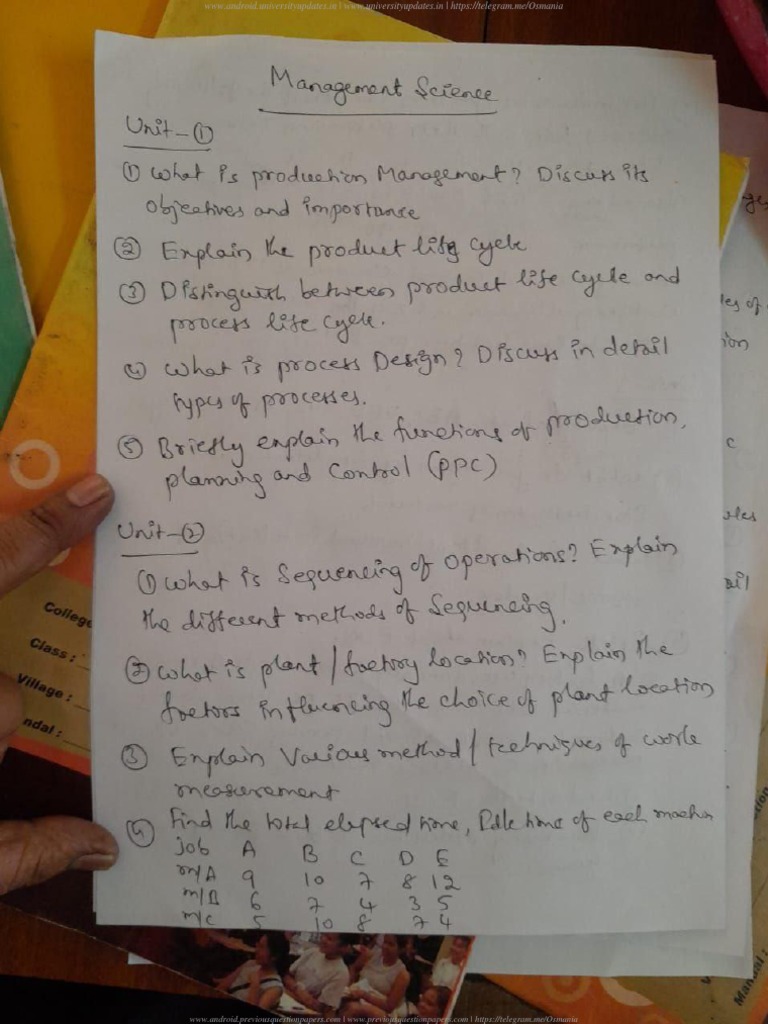 www.android.universityupdates.in | www.universityupdates.in | https://telegram.me/Osmania
Management Science
Unit-①
① What is production Management? Discuss its
objectives and importance
② Explain the product life cycle
③ Distinguish between product life cycle and
process life cycle.
④ What is process Design? Discuss in detail
types of processes.
⑤ Briefly explain the functions of production,
planning and control (PPC)
Unit-②
① What is Sequencing of operations? Explain
the different methods of Sequencing.
② What is plant/factory location? Explain the
factors influencing the choice of plant location
③ Explain Various method/techniques of work
measurement
④ Find the total elapsed time, Idle time of each machin
job A B C D E
m/A 9 10 7 8 12
m/B 6 7 4 3 5
m/c 5 10 8 7 4
College
Class:
Village:
ndal:
les of
ion
c
ail
www.android.previousquestionpapers.com | www.previousquestionpapers.com | https://telegram.me/Osmania